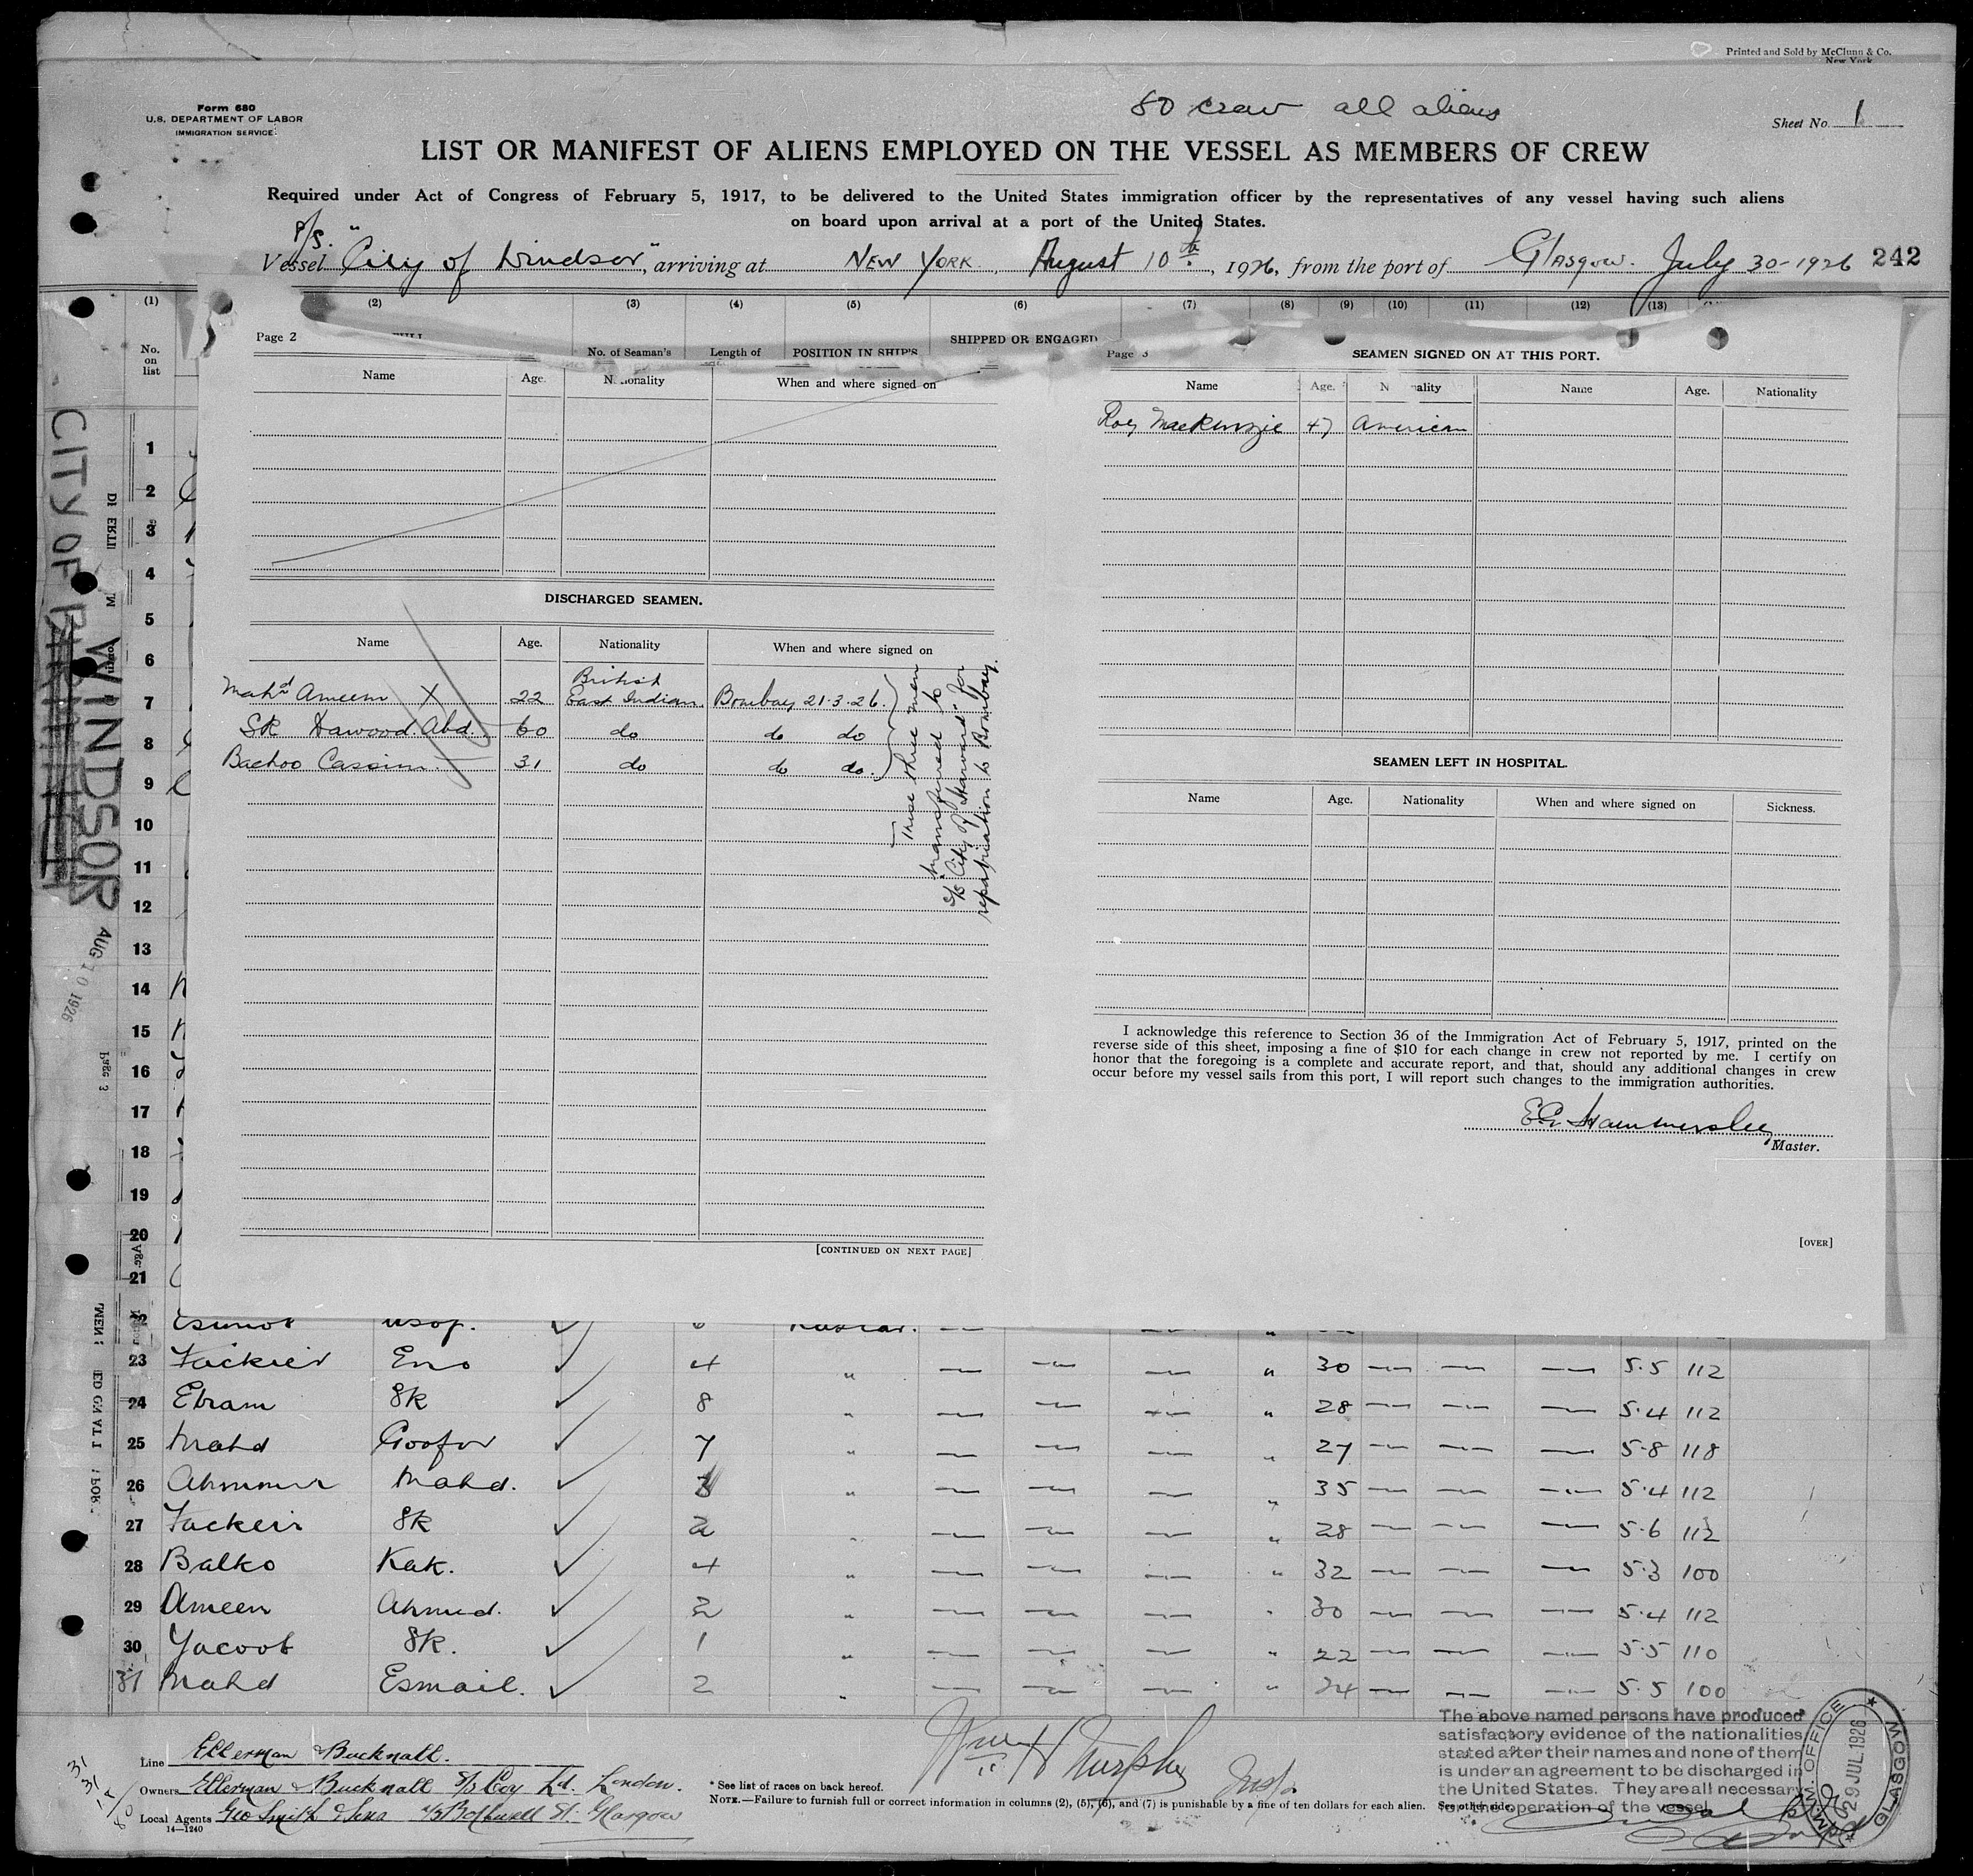 Printed and Sold by McClunn & Co.
New York
Form 680
U.S. DEPARTMENT OF LABOR
IMMIGRATION SERVICE
80 crew all aliens
Sheet No. 1
LIST OR MANIFEST OF ALIENS EMPLOYED ON THE VESSEL AS MEMBERS OF CREW
Required under Act of Congress of February 5, 1917, to be delivered to the United States immigration officer by the representatives of any vessel having such aliens
on board upon arrival at a port of the United States.
Vessel S/S. "City of Windsor", arriving at New York, August 10th, 1926, from the port of Glasgow. July 30-1926 242
(1) (2) (3) (4) (5) (6) (7) (8) (9) (10) (11) (12) (13)
No. on list
No. of Seaman's Length of POSITION IN SHIP'S SHIPPED OR ENGAGED
Page 2
Name Age. Nationality When and where signed on
DISCHARGED SEAMEN.
Name Age. Nationality When and where signed on
Mahd Ameem X 22 British East Indian Bombay 21.3.26.
SK Dawood Abd. 60 do do do
Bachoo Cassim 31 do do do.
These three men
transferred to
S/S City of Harvard for
repatriation to Bombay.
[CONTINUED ON NEXT PAGE]
Page 3
SEAMEN SIGNED ON AT THIS PORT.
Name Age. Nationality Name Age. Nationality
Roy MacKenzie 47 American
SEAMEN LEFT IN HOSPITAL.
Name Age. Nationality When and where signed on Sickness.
I acknowledge this reference to Section 36 of the Immigration Act of February 5, 1917, printed on the
reverse side of this sheet, imposing a fine of $10 for each change in crew not reported by me. I certify on
honor that the foregoing is a complete and accurate report, and that, should any additional changes in crew
occur before my vessel sails from this port, I will report such changes to the immigration authorities.
E.G. Hammersley
Master.
[OVER]
CITY OF WINDSOR
AUG 10 1926
1
2
3
4
5
6
7
8
9
10
11
12
13
14
15
16
17
18
19
20
21
22
23 Fackier Eno 4 " 30 5.5 112
24 Ebram SK 8 " 28 5.4 112
25 Mahd Goofor 7 " 27 5-8 118
26 Ahmmir Mahd. 3 " 35 5.4 112
27 Fackeir SK 2 " 28 5.6 112
28 Balko Kak. 4 " 32 5.3 100
29 Ameen Ahmed. 2 " 30 5.4 112
30 Yacoob SK. 1 " 22 5.5 110
31 Mahd Esmail. 2 " 24 5.5 100
Line Ellerman & Bucknall.
Owners Ellerman & Bucknall S/S Coy Ld. London.
Local Agents Geo Smith & Sons Bothwell St. Glasgow
14—1240
Wm H Murphy
* See list of races on back hereof.
NOTE.—Failure to furnish full or correct information in columns (2), (5), (6), and (7) is punishable by a fine of ten dollars for each alien. See other side.
The above named persons have produced
satisfactory evidence of the nationalities
stated after their names and none of them
is under an agreement to be discharged in
the United States. They are all necessary
for the operation of the vessel
29 JUL 1926
GLASGOW